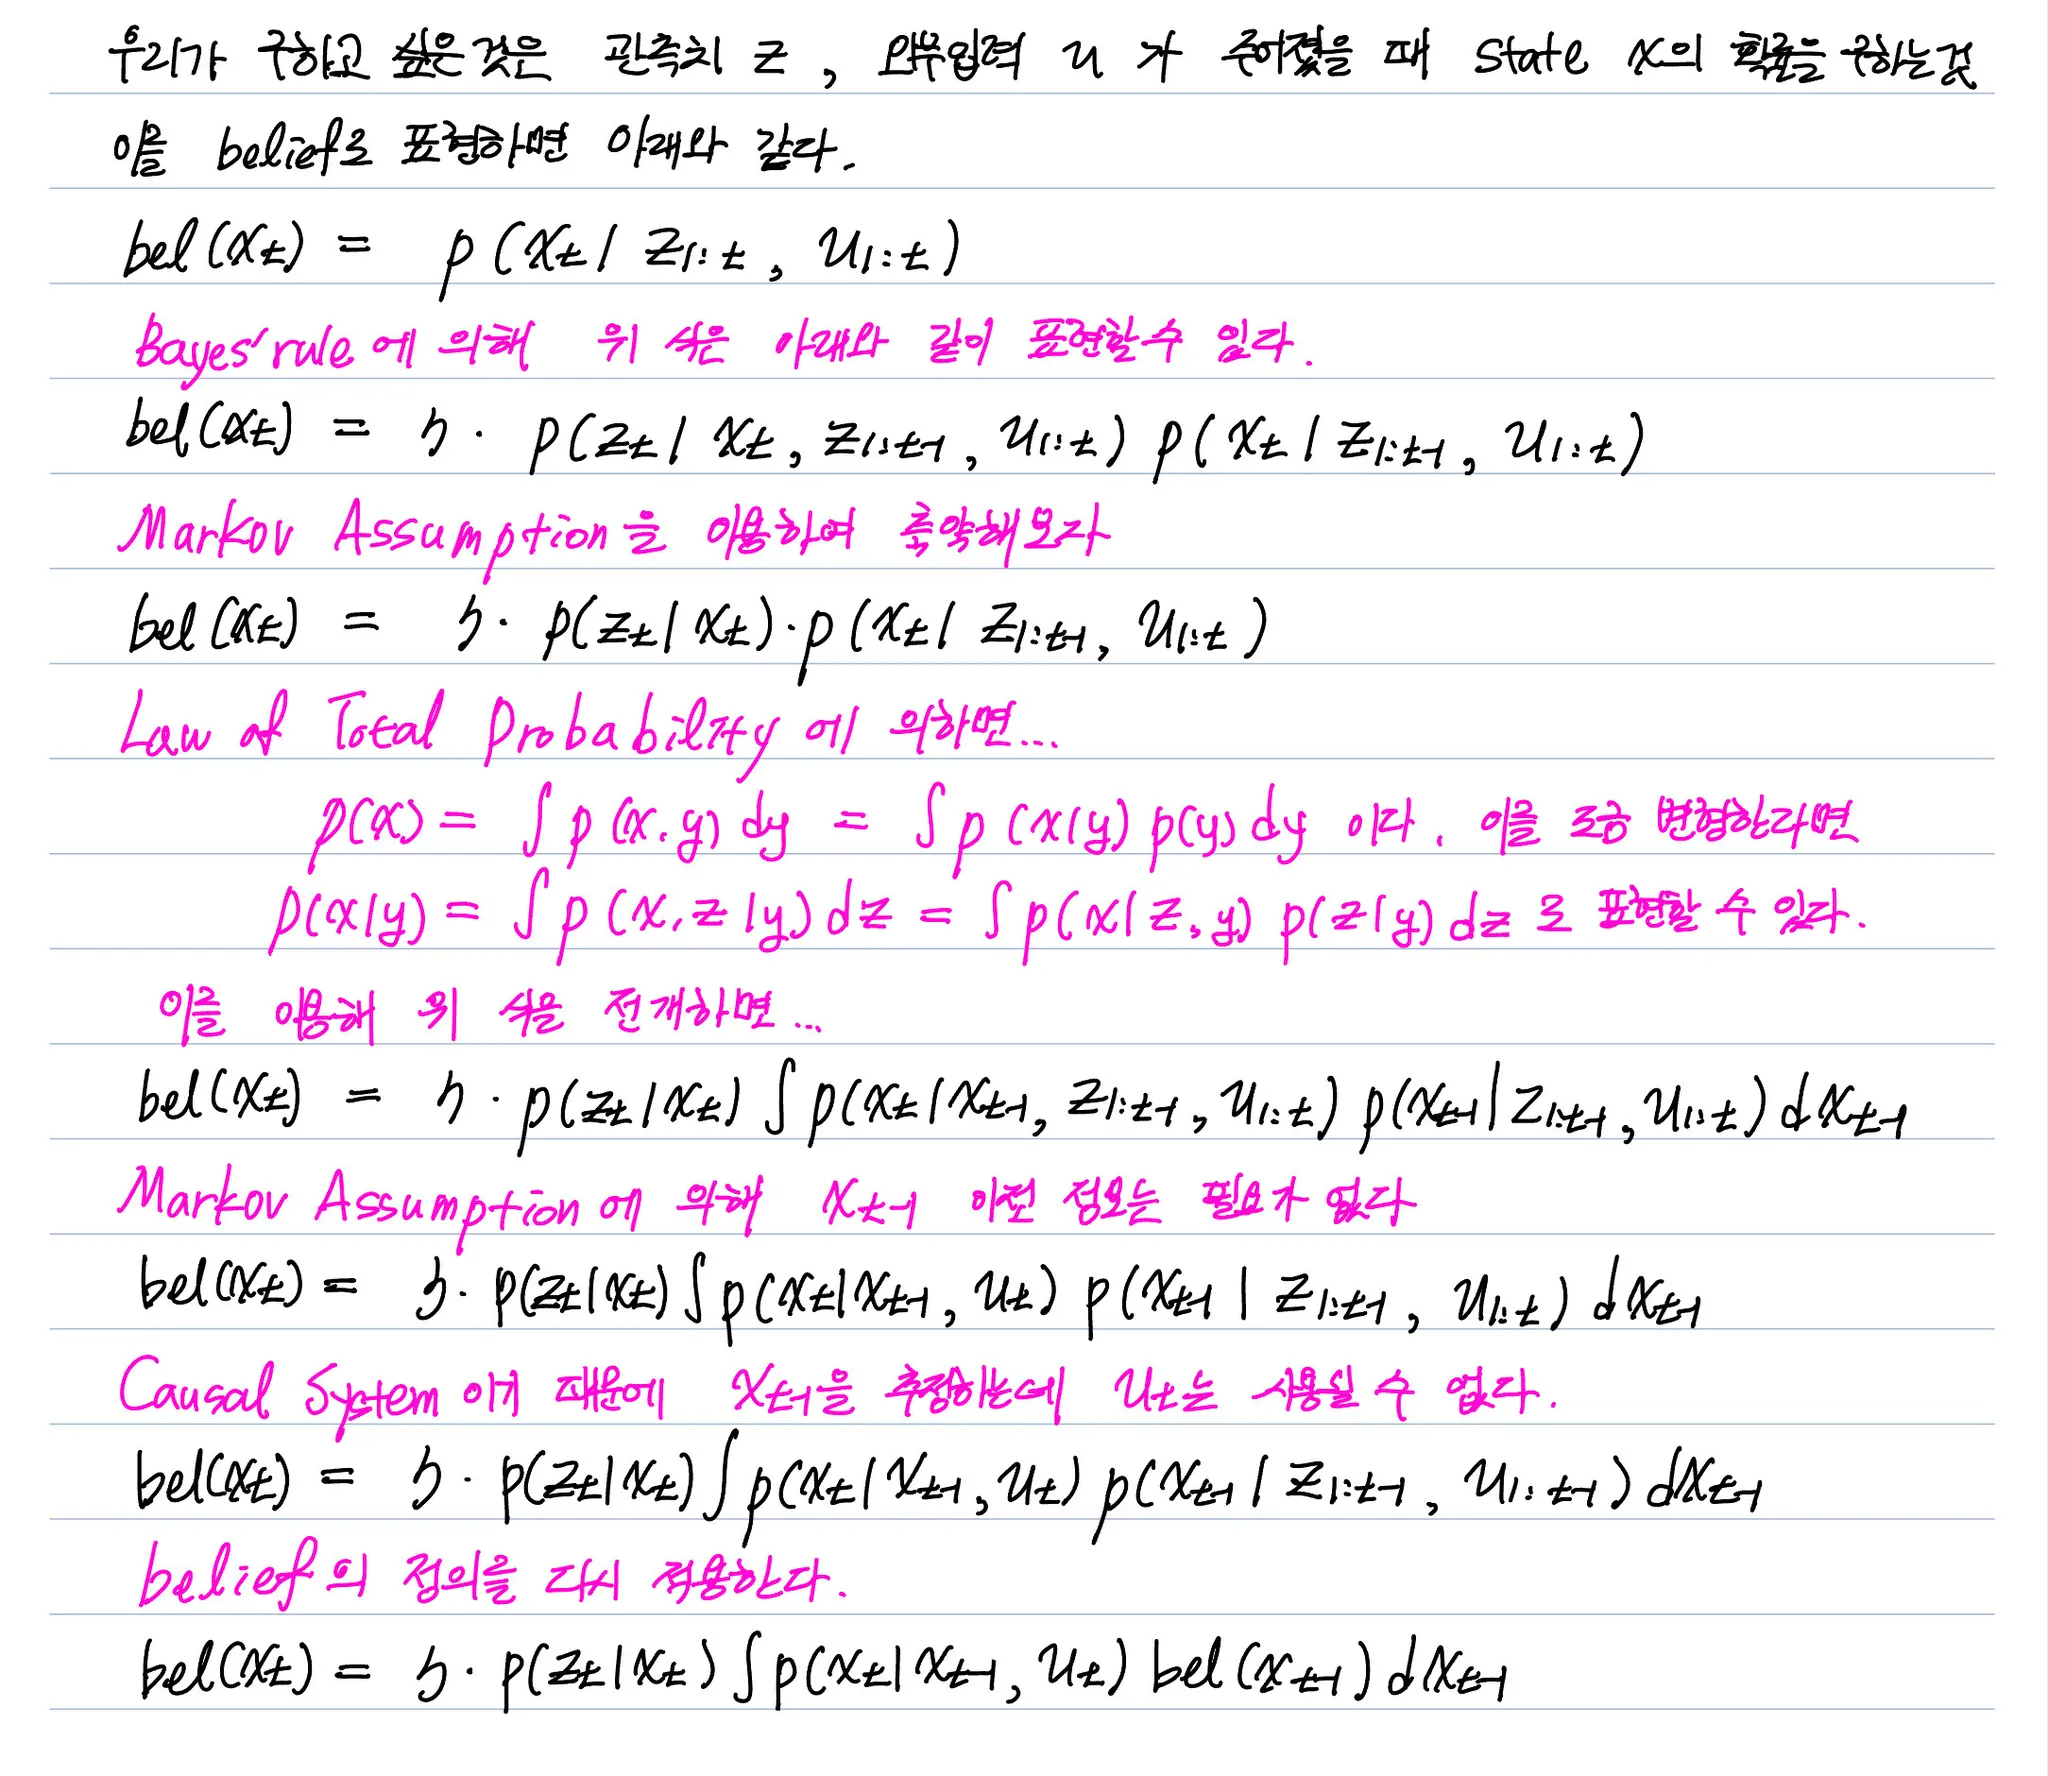 우리가 구하고 싶은 것은 관측치 z , 외부입력 u 가 주어졌을 때 state x의 확률을 구하는것
이를 belief로 표현하면 아래와 같다.
bel(x_t) = p(x_t | z_{1:t}, u_{1:t})
Bayes' rule에 의해 위 식은 아래와 같이 표현할 수 있다.
bel(x_t) = η · p(z_t | x_t, z_{1:t-1}, u_{1:t}) p(x_t | z_{1:t-1}, u_{1:t})
Markov Assumption을 이용하여 축약해보자
bel(x_t) = η · p(z_t | x_t) · p(x_t | z_{1:t-1}, u_{1:t})
Law of Total Probability에 의하면...
p(x) = ∫ p(x, y) dy = ∫ p(x|y) p(y) dy 이다. 이를 조금 변형한다면
p(x|y) = ∫ p(x, z|y) dz = ∫ p(x|z, y) p(z|y) dz 로 표현할 수 있다.
이를 이용해 위 식을 전개하면...
bel(x_t) = η · p(z_t | x_t) ∫ p(x_t | x_{t-1}, z_{1:t-1}, u_{1:t}) p(x_{t-1} | z_{1:t-1}, u_{1:t}) dx_{t-1}
Markov Assumption에 의해 x_{t-1} 이전 정보는 필요가 없다
bel(x_t) = η · p(z_t | x_t) ∫ p(x_t | x_{t-1}, u_t) p(x_{t-1} | z_{1:t-1}, u_{1:t}) dx_{t-1}
Causal System 이기 때문에 x_{t-1}을 추정하는데 u_t는 사용될 수 없다.
bel(x_t) = η · p(z_t | x_t) ∫ p(x_t | x_{t-1}, u_t) p(x_{t-1} | z_{1:t-1}, u_{1:t-1}) dx_{t-1}
belief의 정의를 다시 적용한다.
bel(x_t) = η · p(z_t | x_t) ∫ p(x_t | x_{t-1}, u_t) bel(x_{t-1}) dx_{t-1}